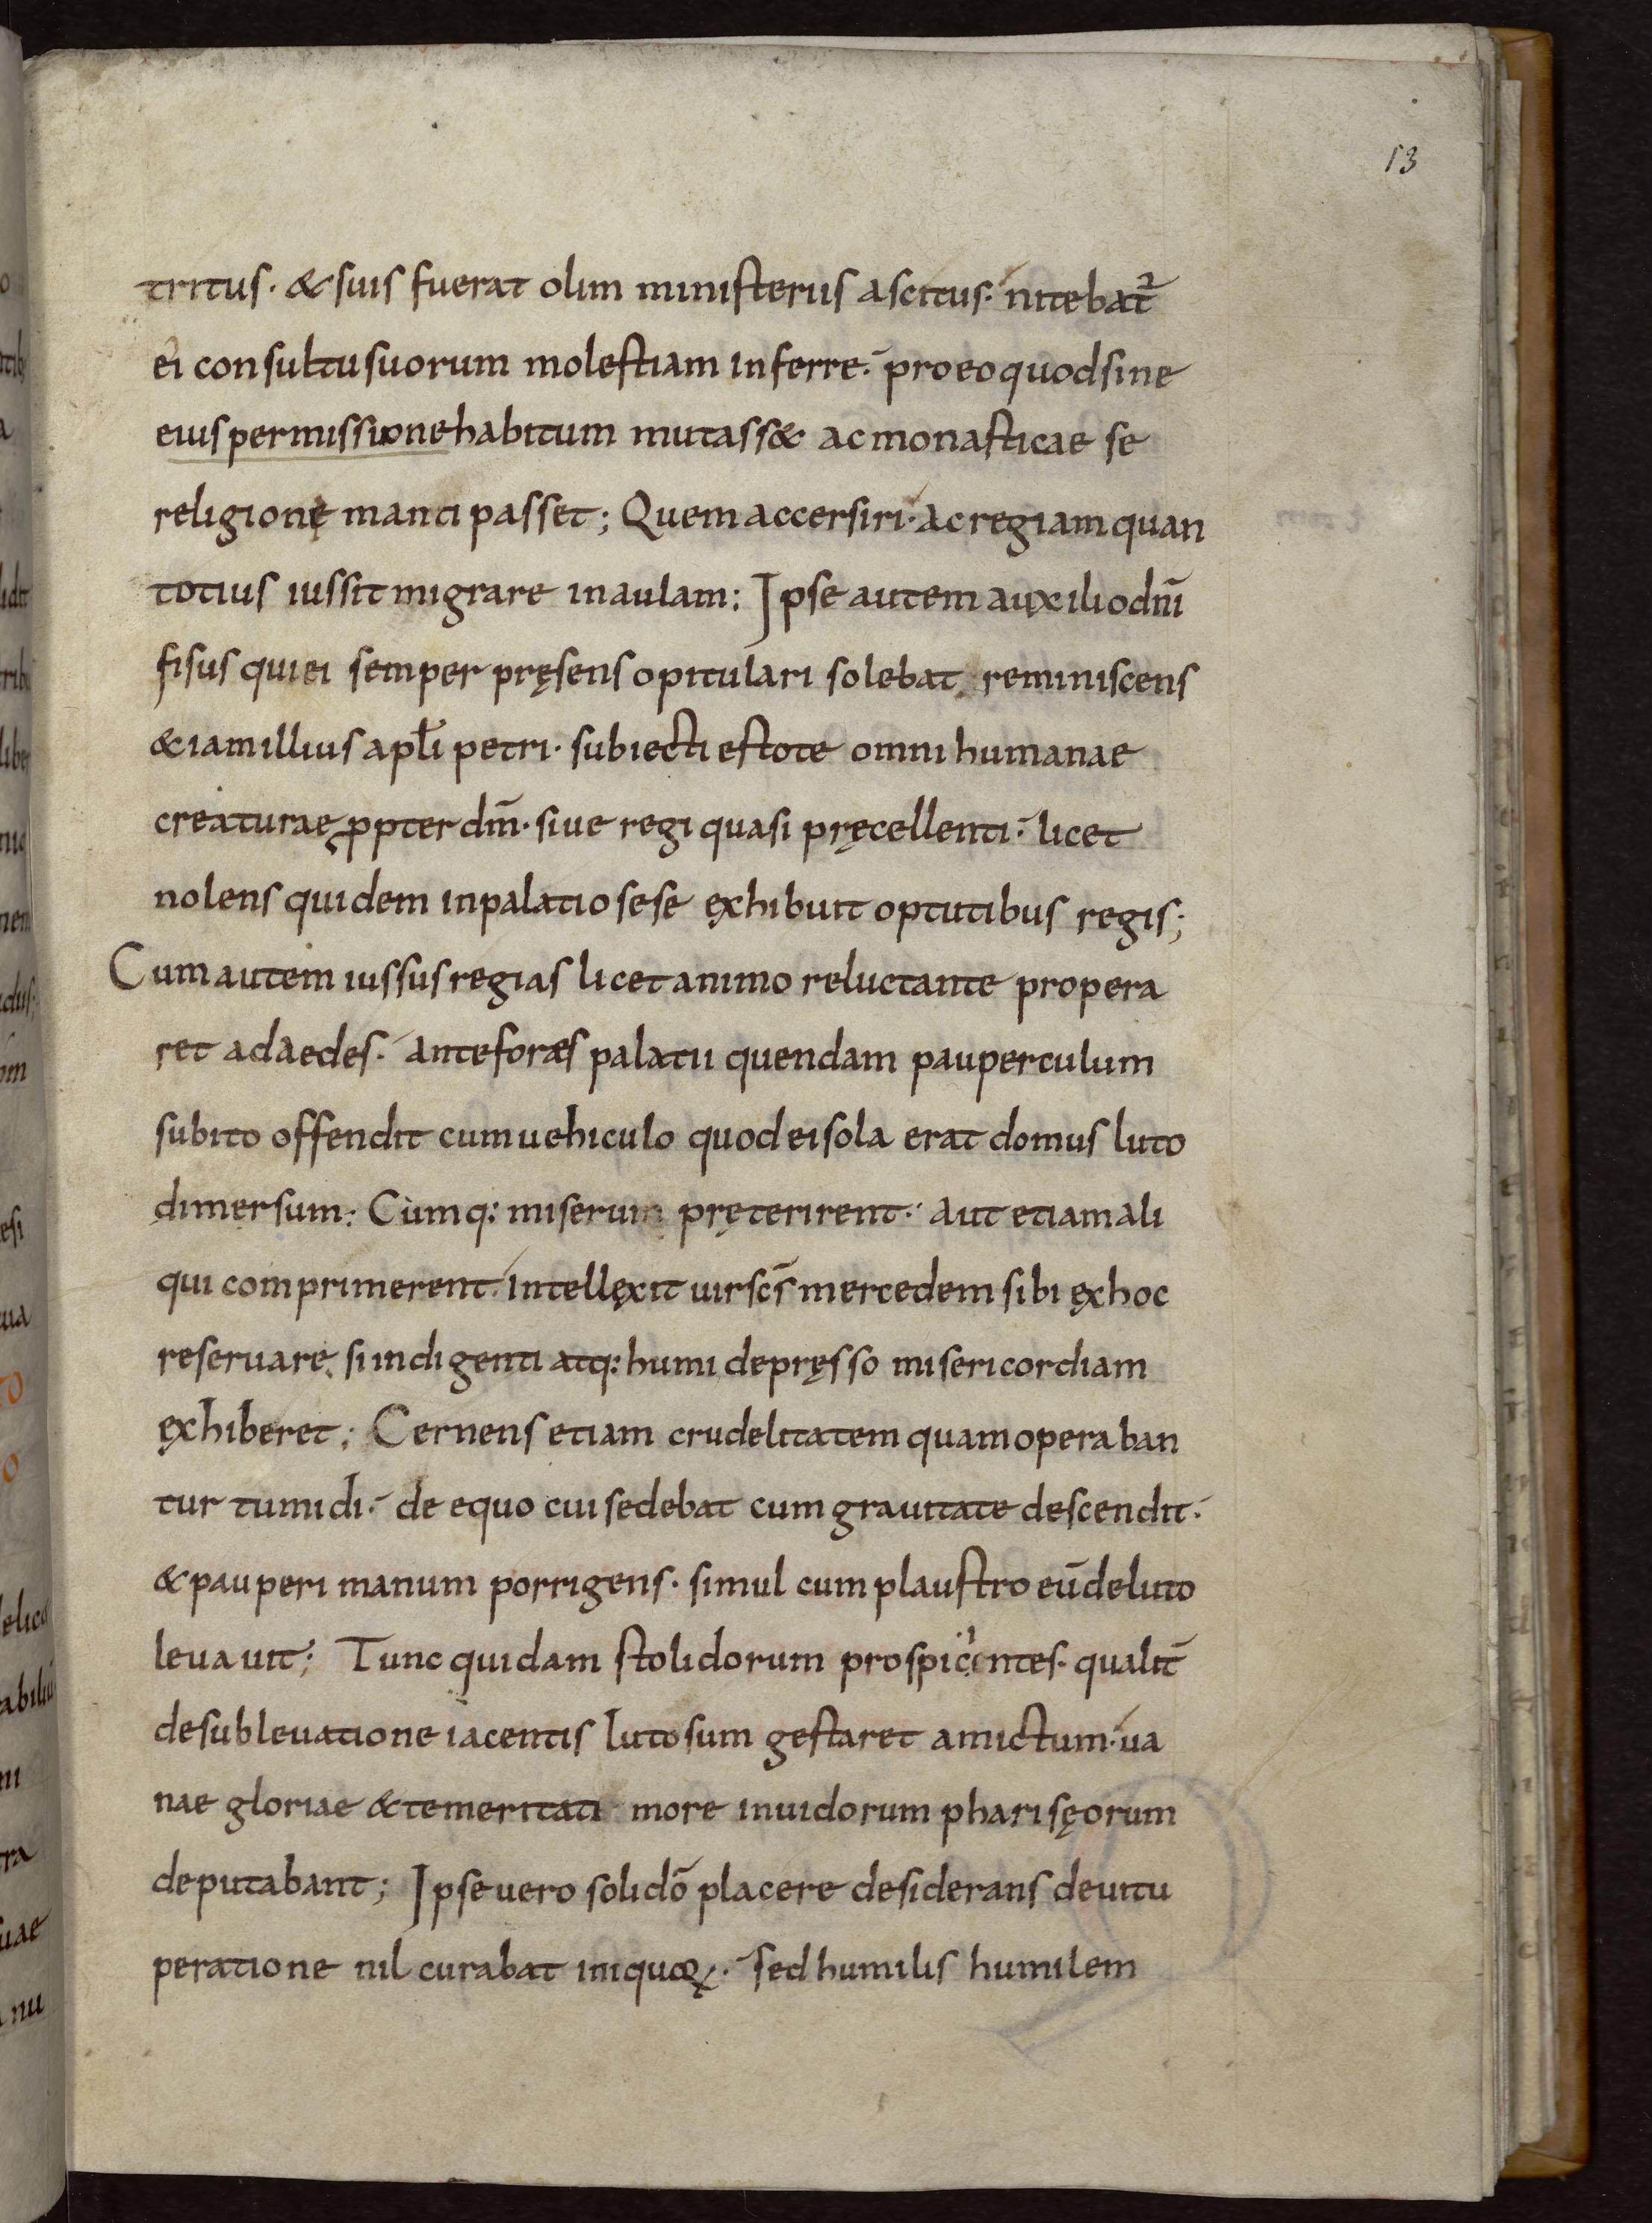 13
tritus· & suis fuerat olim ministeriis ascitus· nitebat᷑
ei consultu suorum molestiam inferre· pro eo quod sine
eius permissione habitum mutass& ac monasticae se
religionę mancipasset; Quem accersiri· ac regiam quan
totius iussit migrare in aulam; Ipse autem auxilio dn̄i
fisus qui ei semper pręsens opitulari solebat, reminiscens
& iam illius apłi petri· subiecti estote omni humanae
creaturae ꝓpter dm̄· siue regi quasi pręcellenti· licet
nolens quidem in palatio sese ęxhibuit optutibus regis;
Cum autem iussus regias licet animo reluctante propera
ret ad aedes· ante foras palatii quendam pauperculum
subito offendit cum uehiculo quod ei sola erat domus luto
dimersum; Cùmq: miserum pręterirent· aut etiam ali
qui comprimerent· intellęxit uir scs̄ mercedem sibi ęx hoc
reseruare, si indigenti atq: humi depręsso misericordiam
ęxhiberet; Cernens etiam crudelitatem quam operaban
tur tumidi· de equo cui sedebat cum grauitate descendit·
& pauperi manum porrigens· simul cum plaustro eū de luto
leuauit; Tunc quidam stolidorum prospicientes· qualit̄
de subleuatione iacentis lutosum gestaret amictum· ua
nae gloriae & temeritati more inuidorum pharisęorum
deputabant; Ipse uero soli dō placere desiderans de uitu
peratione nil curabat iniquoꝝ· sed humilis humilem